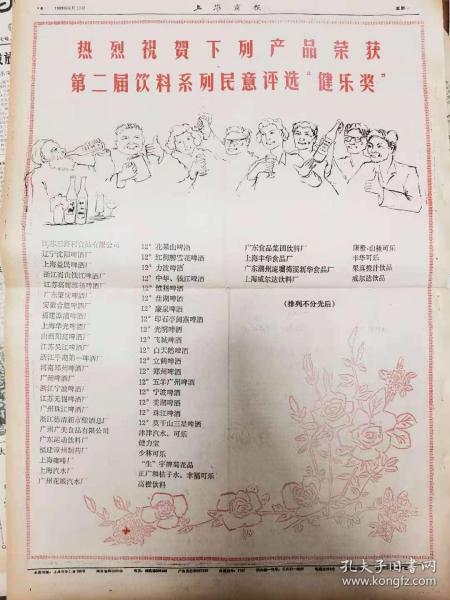 上海商报
热烈祝贺下列产品荣获
第二届饮料系列民意评选“健乐奖”
12°花果山啤酒
辽宁沈阳啤酒厂 12°红梅牌雪花啤酒
上海益民啤酒厂 12°力波啤酒
浙江萧山钱江啤酒厂 12°中华、钱江啤酒
12°
广东肇庆啤酒厂 12°鼎湖啤酒
安徽合肥啤酒厂 12°廉泉啤酒
福建漳浦啤酒厂 12°印石亭闽嘉啤酒
上海华光啤酒厂 12°光明啤酒
山西阳泉啤酒厂 12°飞城啤酒
江苏吴江啤酒厂 12°白天鹅啤酒
浙江平湖第一啤酒厂 12°立鹤啤酒
河南郑州啤酒厂 12°郑州啤酒
广州啤酒厂 12°五羊广州啤酒
浙江宁波啤酒厂 12°宁波啤酒
江苏无锡啤酒厂 12°美湖啤酒
广州珠江啤酒厂 12°珠江啤酒
浙江德清新市酿酒总厂 12°莫干山三星啤酒
广州广美食品有限公司 津津汽水、可乐
广东运动饮料厂 健力宝
福建漳州制药厂 少林可乐
上海咖啡厂 “生”字牌菊花晶
上海汽水厂 正广和桔子水、幸福可乐
广州花城汽水厂 高橙饮料
广东食品集团饮料厂 康整·山楂可乐
上海丰华食品厂 丰华可乐
广东潮州庵埠梅溪新华食品厂 果真橙汁饮品
上海威尔达饮料厂 威尔达饮品
(排列不分先后)
孔夫子旧书网